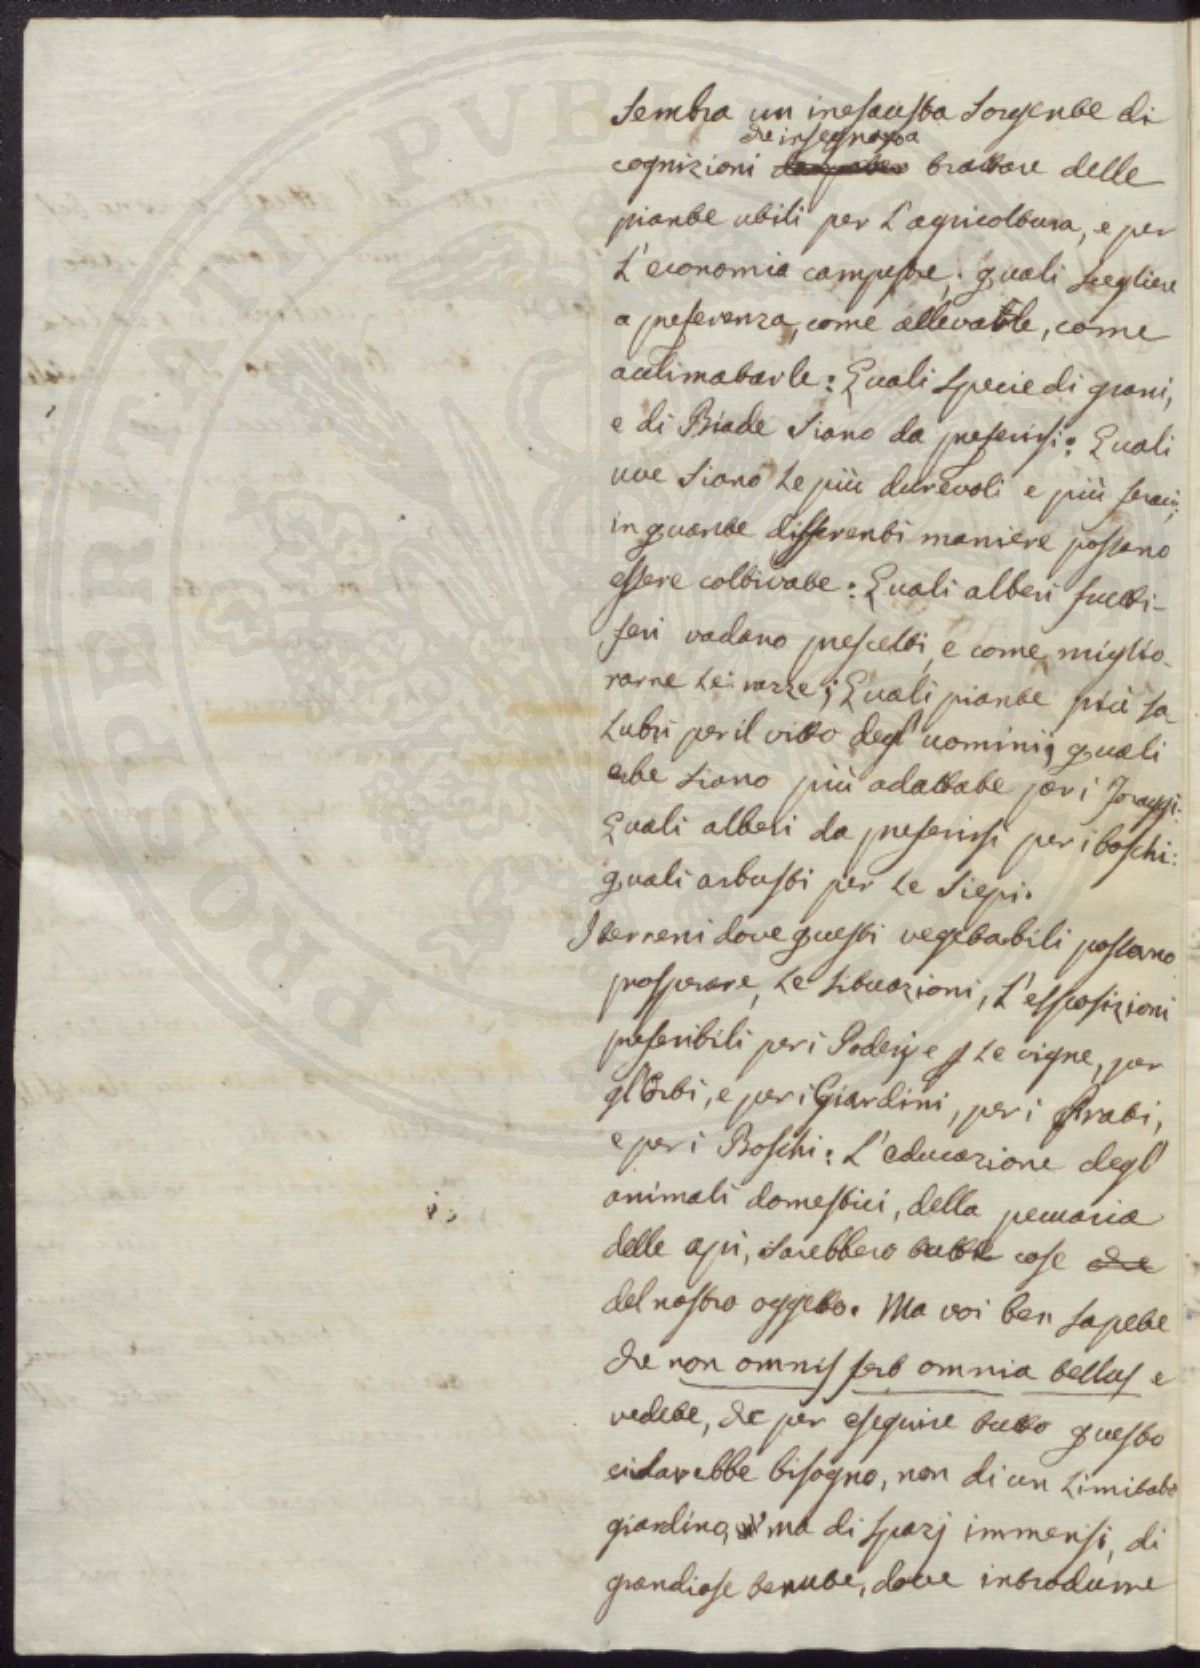 PROSPERITATI PVBLICAE
sembra un inesausta sorgente di
che insegnano a
cognizioni trattare delle
piante utili per l'agricoltura, e per
l'economia campestre; quali scegliere
a preferenza, come allevatele, come
aclimatarle: Quali specie di grani,
e di Biade siano da preferirsi: Quali
uve siano le più durevoli e più feraci;
in quante differenti maniere possano
essere coltivate: Quali alberi frutti-
feri vadano prescelti, e come miglio-
rarne le razze; Quali piante più sa
lubri per il vitto degl'uomini; quali
erbe siano più adattate per i foraggi:
Quali alberi da preferirsi per i boschi:
quali arbusti per le siepi.
I terreni dove questi vegetabili possano
prosperare, le situazioni, l'esposizioni
preferibili per i Poderi, e le vigne, per
gl'Orti, e per i Giardini, per i Prati,
e per i Boschi: L'educazione degl'
animali domestici, della pecuaria
delle api, sarebbero tutte cose che
del nostro oggetto. Ma voi ben sapete
che non omnis fert omnia tellus e
vedete, che per eseguire tutto questo
ci sarebbe bisogno, non di un limitato
giardino, ma di spazj immensi, di
grandiose tenute, dove introdurne